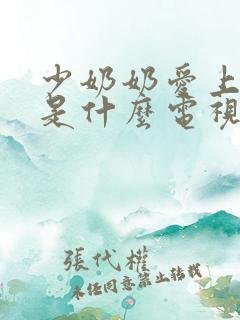 少奶奶愛上
是什麼電視
張代權
未经同意禁止转载